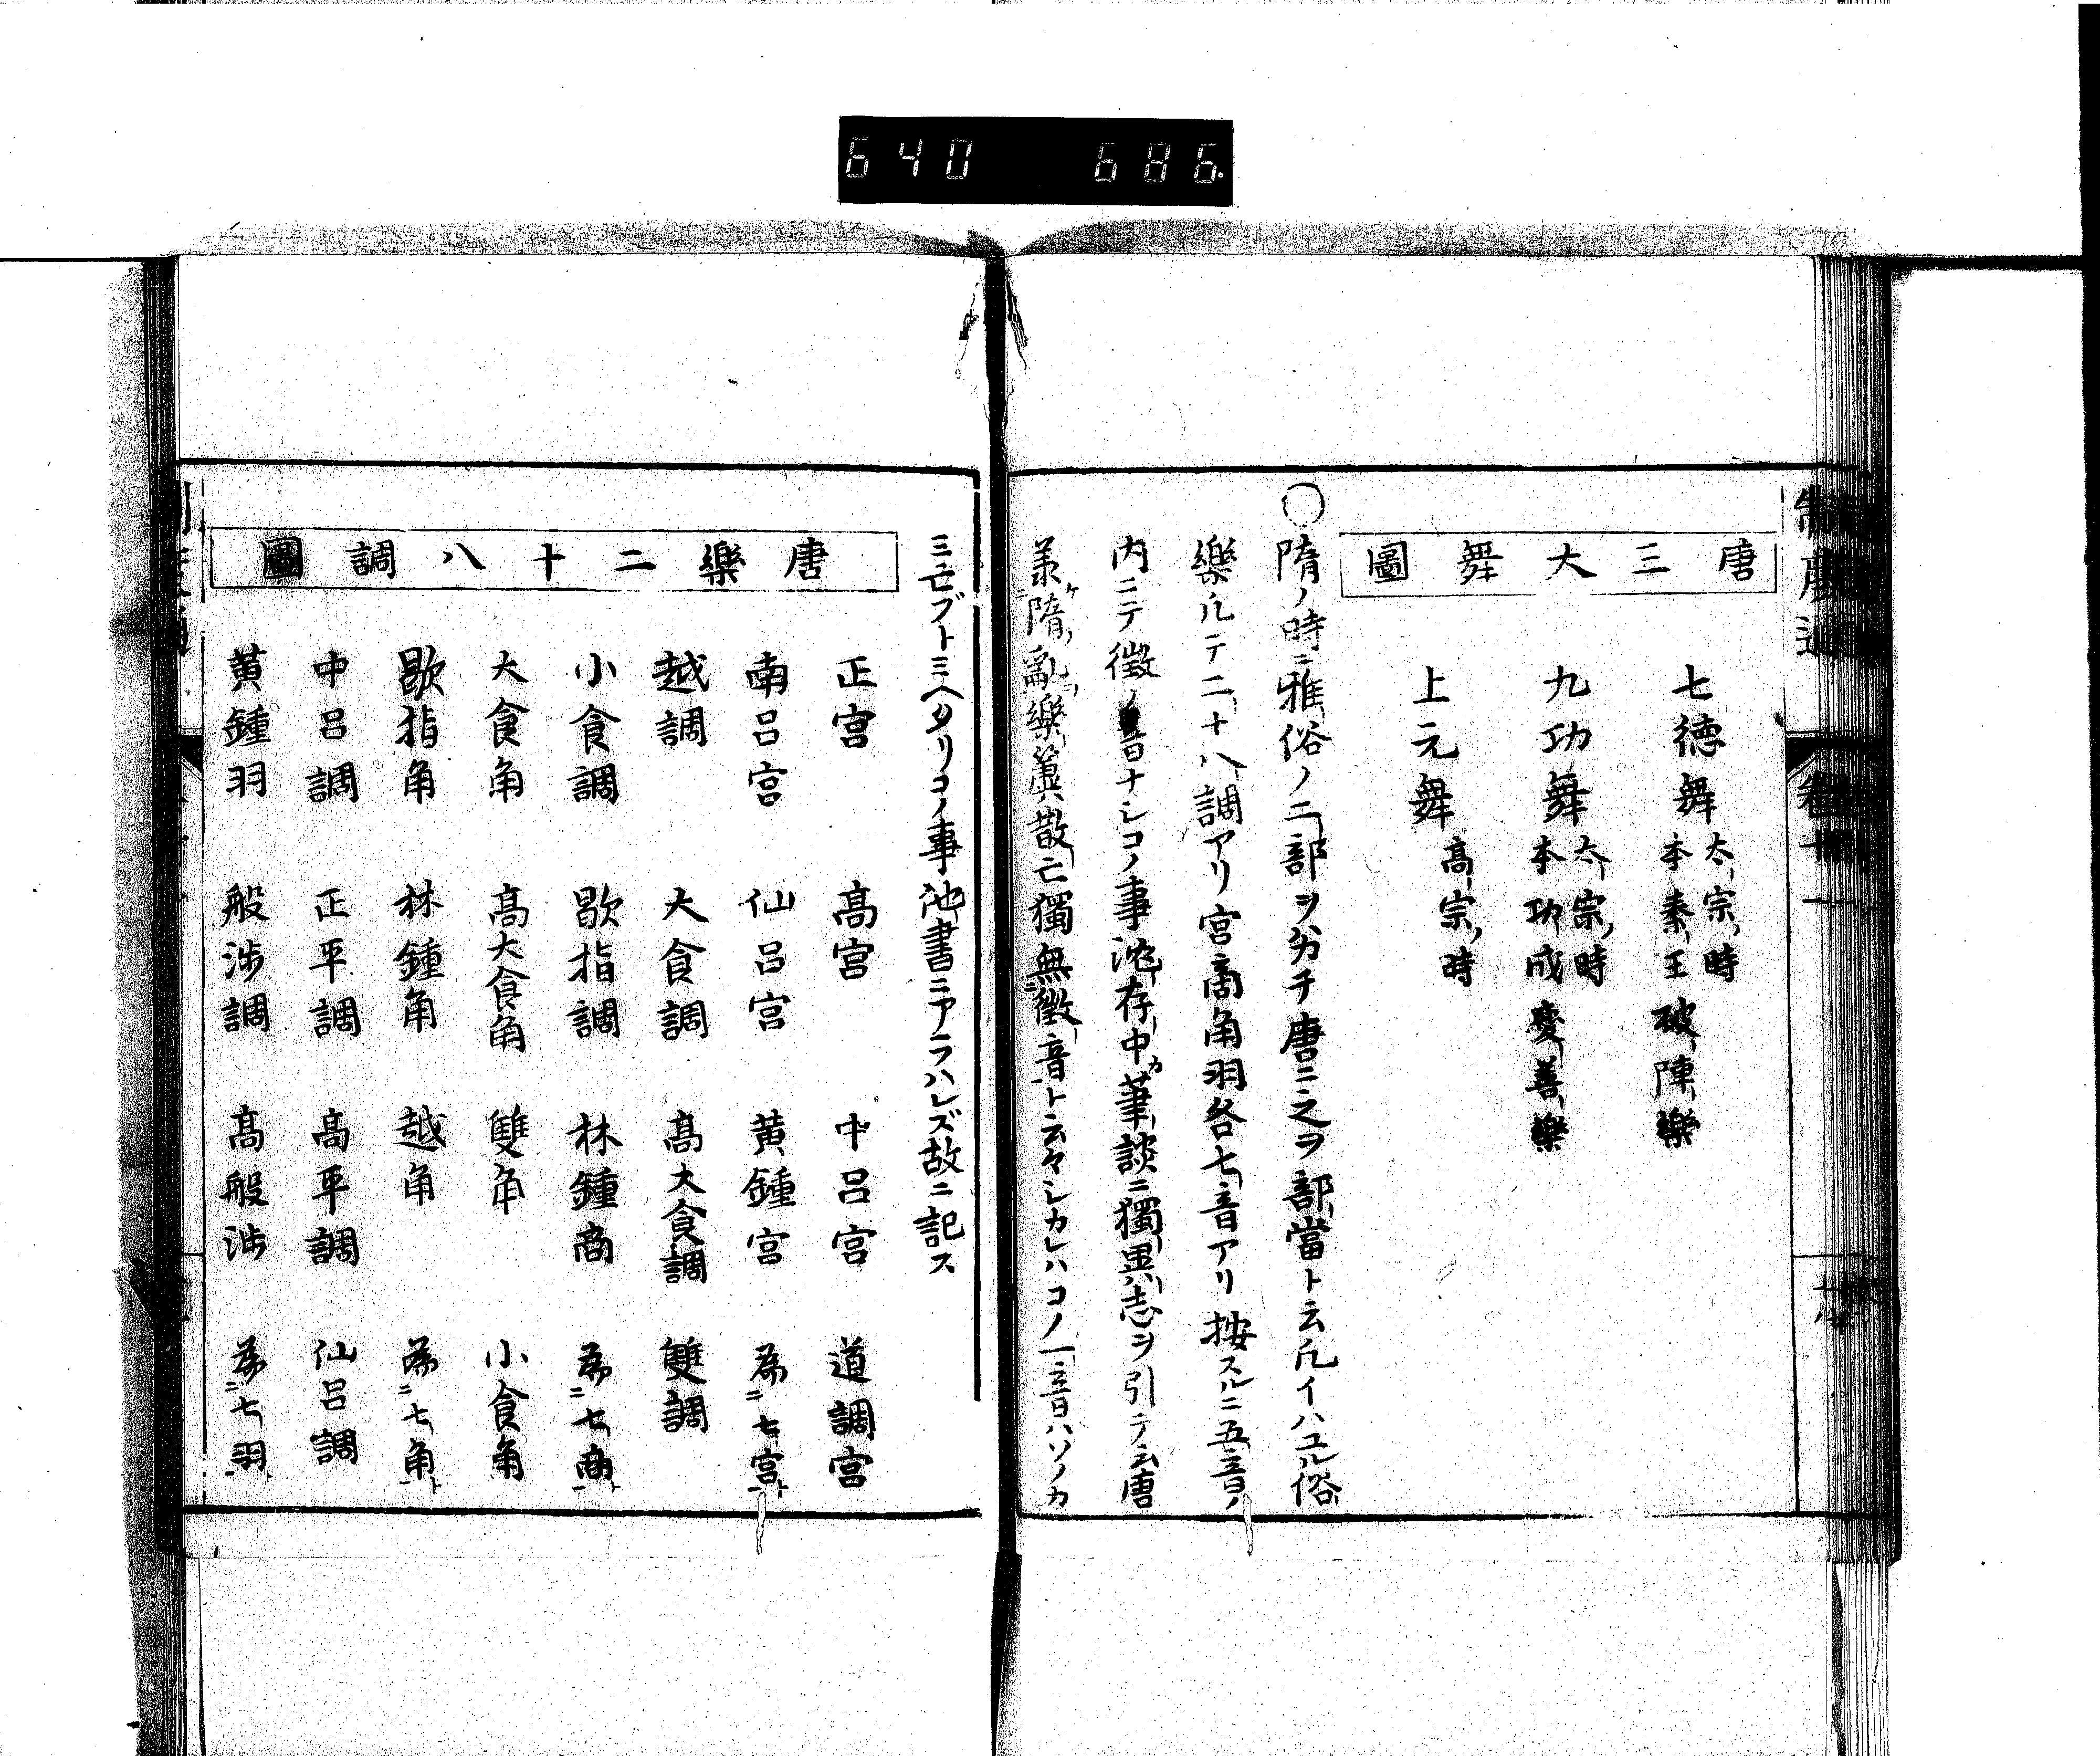 640 686.
唐三大舞圖
七德舞 太宗ノ時 本秦王破陣樂
九功舞 太宗ノ時 本功成慶善樂
上元舞 高宗ノ時
○隋ノ時ニ雅俗ノ二部ヲ分チ唐ニ之ヲ部當ト云凡イハユル俗
樂凡テ二十八調アリ宮商角羽各七音アリ按スルニ五音ノ
内ニテ徵ノ音ナシコノ事沈存中カ筆談ニ獨異志ヲ引テ云唐
承ケ隋ノ亂樂簴散亡獨無徵音ト云々シカレハコノ一音ハソノカ
ミ亡ブトミヘタリコノ事他書ニアラハレズ故ニ記ス
唐樂二十八調圖
正宮 高宮 中呂宮 道調宮
南呂宮 仙呂宮 黄鍾宮 爲七宮
越調 大食調 高大食調 雙調
小食調 歇指調 林鍾商 爲七商
大食角 高大食角 雙角 小食角
歇指角 林鍾角 越角 爲七角
中呂調 正平調 高平調 仙呂調
黄鍾羽 般涉調 高般涉 爲七羽